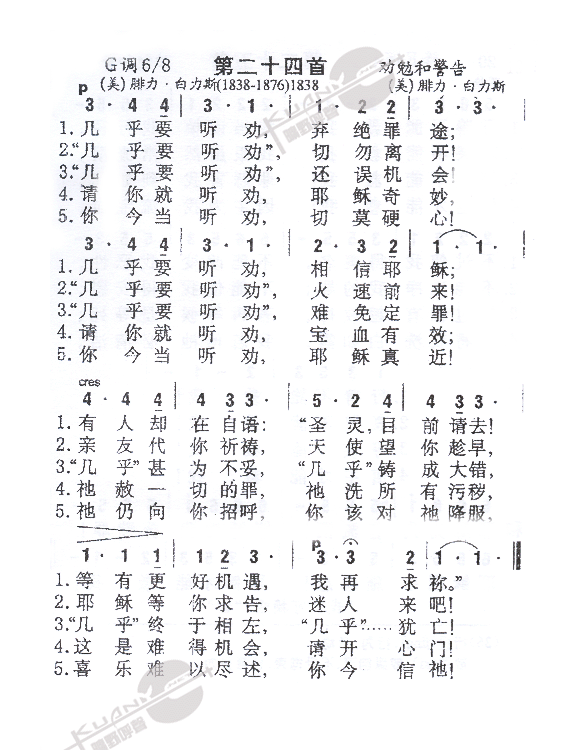 G调6/8 第二十四首 劝勉和警告
(美) 腓力·白力斯(1838-1876)1838 (美) 腓力·白力斯
p
3 · 4 4 | 3 · 1 · | 1 · 2 2 | 3 · 1 · |
1. 几 乎 要 听 劝, 弃 绝 罪 途;
2.“几 乎 要 听 劝”, 切 勿 离 开!
3.“几 乎 要 听 劝”, 还 误 机 会!
4. 请 你 就 听 劝, 耶 稣 奇 妙,
5. 你 今 当 听 劝, 切 莫 硬 心!
3 · 4 4 | 3 · 1 · | 2 · 3 2 | 1 · 1 · |
1. 几 乎 要 听 劝, 相 信 耶 稣;
2.“几 乎 要 听 劝”, 火 速 前 来!
3.“几 乎 要 听 劝”, 难 免 定 罪!
4. 请 你 就 听 劝, 宝 血 有 效;
5. 你 今 当 听 劝, 耶 稣 真 近!
cres
4 · 4 4 | 4 3 3 · | 5 · 2 4 | 4 3 3 · |
1. 有 人 却 在 自语: “圣 灵,目 前 请去!
2. 亲 友 代 你 祈祷, 天 使 望 你 趁早,
3.“几 乎” 甚 为 不妥, “几 乎” 铸 成 大错,
4. 祂 赦 一 切 的罪, 祂 洗 所 有 污秽,
5. 祂 仍 向 你 招呼, 你 该 对 祂 降服,
p
1 · 1 1 | 1 2 3 · | 3 · 3 2 | 1 · 1 ·
1. 等 有 更 好 机遇, 我 再 求 祢。”
2. 耶 稣 等 你 求告, 迷 人 来 吧!
3.“几 乎” 终 于 相左, “几 乎”……犹 亡!
4. 这 是 难 得 机会, 请 开 心 门!
5. 喜 乐 难 以 尽述, 你 今 信 祂!